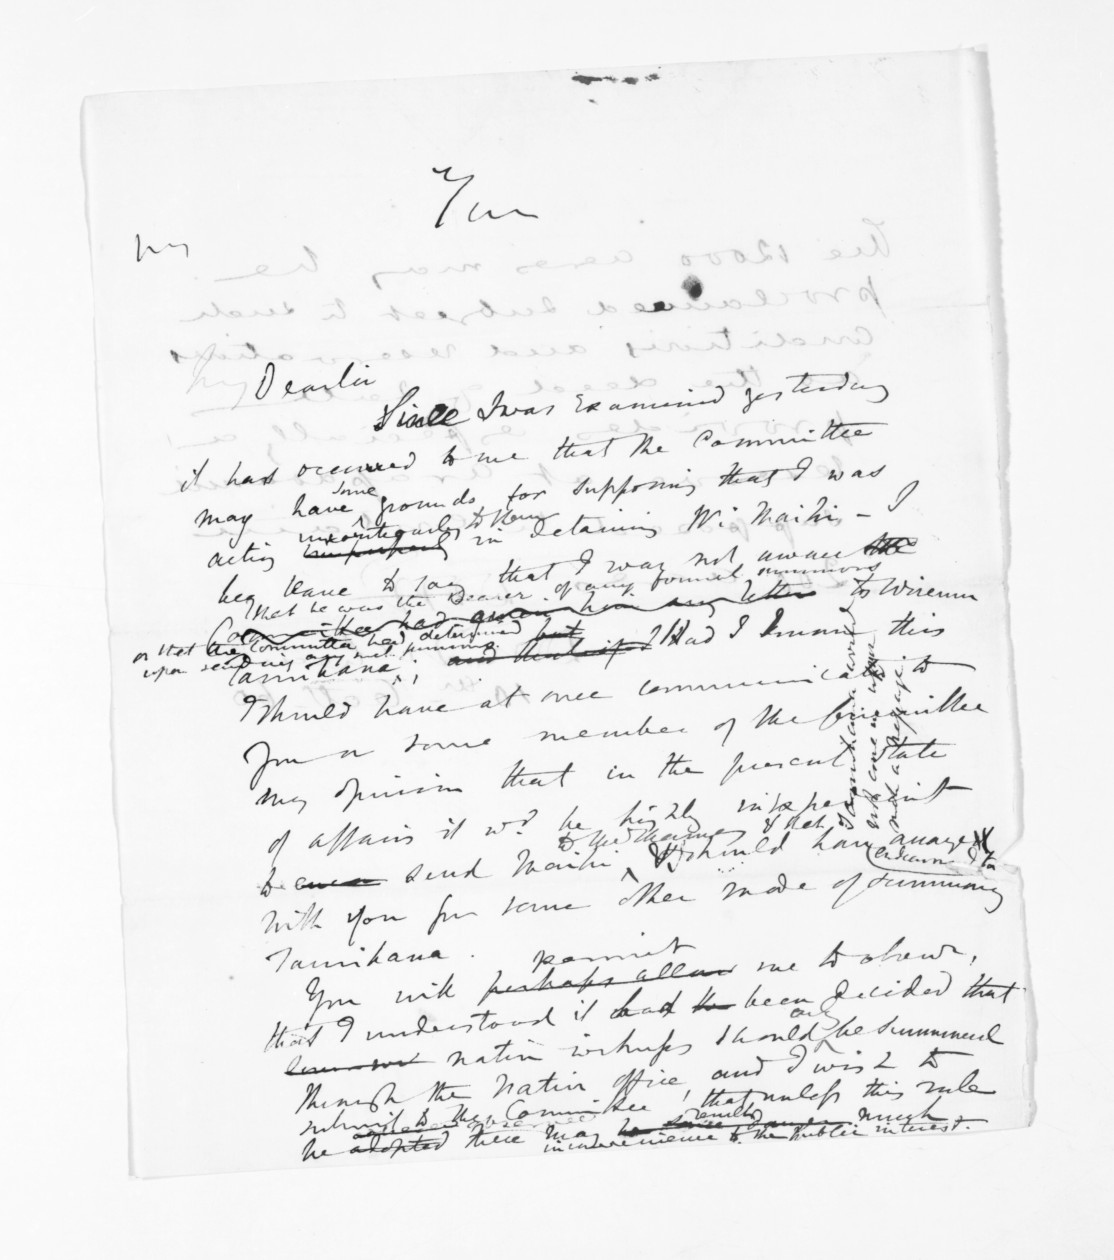 My Dear Sir
Since I was Examined yesterday
it has occurred to me that the Committee
may have some grounds for supposing that I was
acting incautiously in detaining Wi Maihi - I
beg leave to say that I was not aware the
that he was the Bearer of any formal summons
Committee had given him any letter to Wiremu
or that the Committee had determined but
upon sending any such summons
Tamihana; and that if Had I known this
I should have at once communicated to
you or some member of the Committee
my opinion that in the present state
of affairs it wd be highly inexpedient
to send Maihi & that I should have arranged
endeavoured to
with you for some other mode of summoning
Tamihana.
Tamihana would
not come upon
such a message
You will perhaps allow permit me to observe,
that I understood it had been decided that
native witnesses should only be summoned
through the Native Office, and I wish to
submit to the Committee, that unless this rule
be adopted observed there may result much
inconvenience to the Public interest.